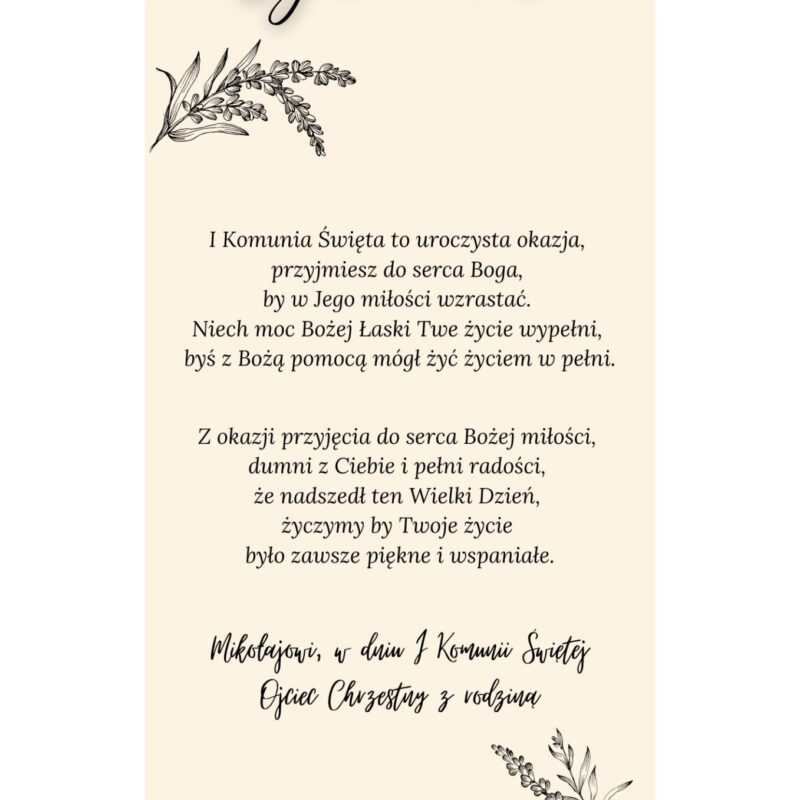 I Komunia Święta to uroczysta okazja,
przyjmiesz do serca Boga,
by w Jego miłości wzrastać.
Niech moc Bożej Łaski Twe życie wypełni,
byś z Bożą pomocą mógł żyć życiem w pełni.
Z okazji przyjęcia do serca Bożej miłości,
dumni z Ciebie i pełni radości,
że nadszedł ten Wielki Dzień,
życzymy by Twoje życie
było zawsze piękne i wspaniałe.
Mikołajowi, w dniu I Komunii Świętej
Ojciec Chrzestny z rodziną